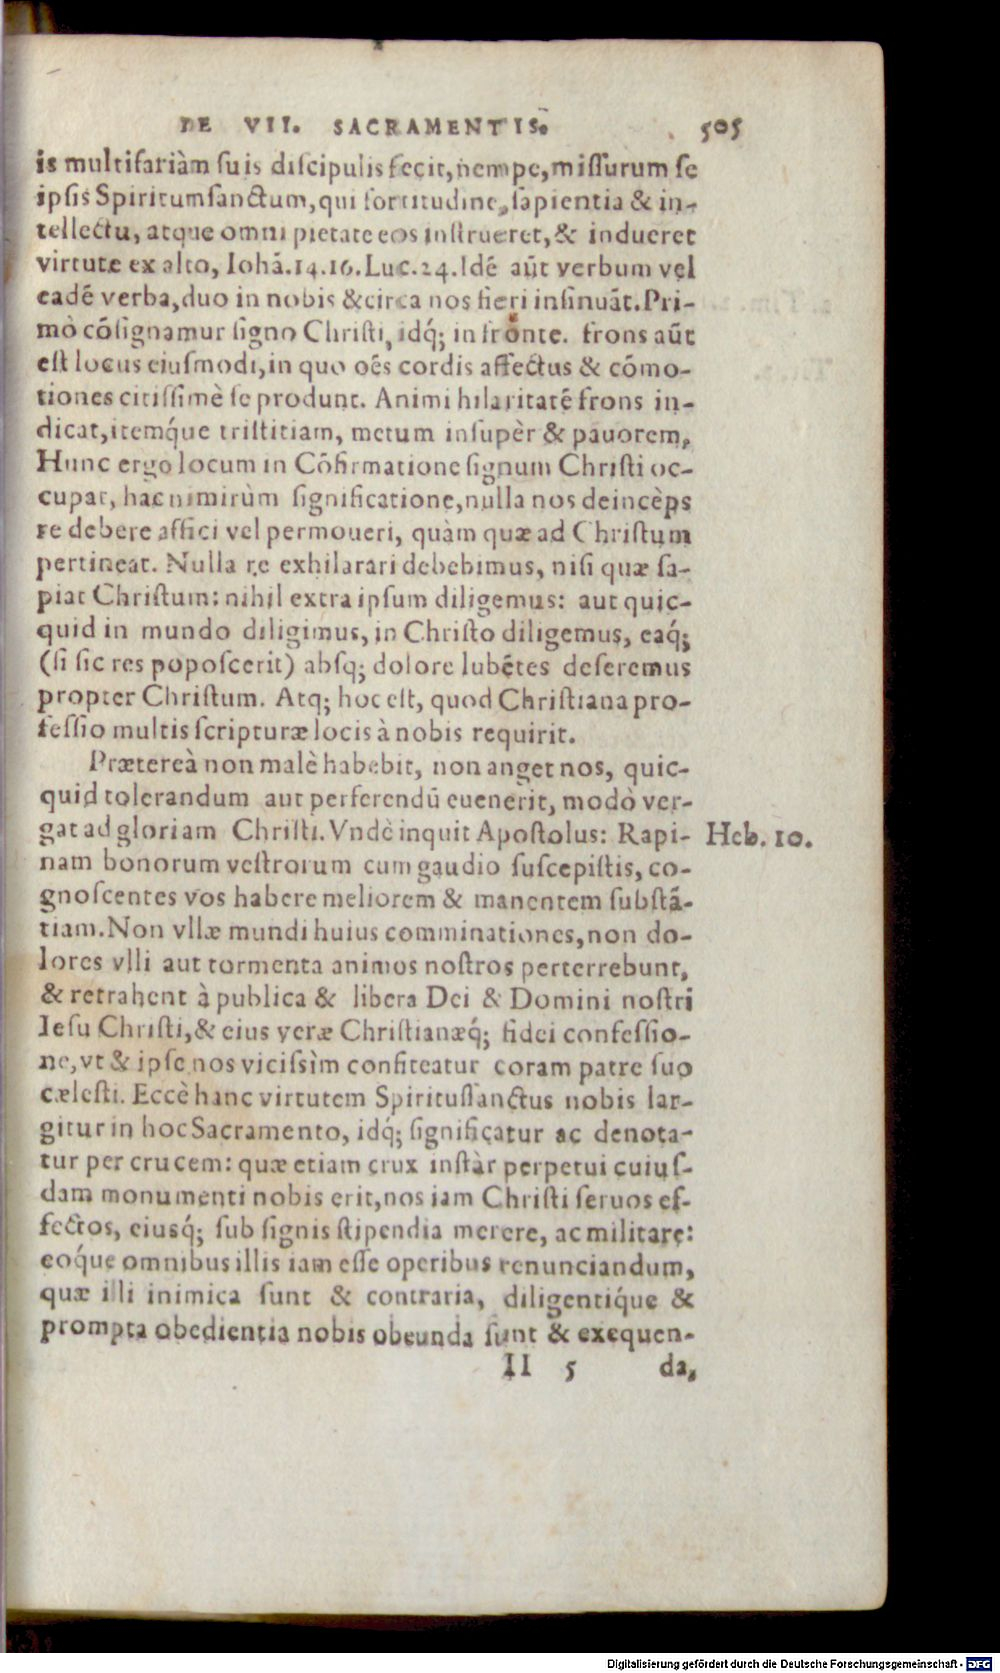 DE VII. SACRAMENTIS. 505
is multifariàm suis discipulis fecit, nempe, missurum se
ipsis Spiritumsanctum, qui fortitudine, sapientia & in-
tellectu, atque omni pietate eos instrueret, & indueret
virtute ex alto, Iohā. 14. 16. Luc. 24. Idē aūt verbum vel
eadē verba, duo in nobis & circa nos fieri insinuāt. Pri-
mò cōsignamur signo Christi, idq́; in frōnte. frons aūt
est locus eiusmodi, in quo oēs cordis affectus & cōmo-
tiones citissimè se produnt. Animi hilaritatē frons in-
dicat, itemq́ue tristitiam, metum insupèr & pauorem,
Hunc ergo locum in Cōfirmatione signum Christi oc-
cupat, hac nimirùm significatione, nulla nos deincèps
re debere affici vel permoueri, quàm quæ ad Christum
pertineat. Nulla re exhilarari debebimus, nisi quæ sa-
piat Christum: nihil extra ipsum diligemus: aut quic-
quid in mundo diligimus, in Christo diligemus, eaq́;
(si sic res poposcerit) absq; dolore lubētes deseremus
propter Christum. Atq; hoc est, quod Christiana pro-
fessio multis scripturæ locis à nobis requirit.
Prætereà non malè habebit, non anget nos, quic-
quid tolerandum aut perferendū euenerit, modò ver-
gat ad gloriam Christi. Vndè inquit Apostolus: Rapi- Heb. 10.
nam bonorum vestrorum cum gaudio suscepistis, co-
gnoscentes vos habere meliorem & manentem substā-
tiam. Non vllæ mundi huius comminationes, non do-
lores vlli aut tormenta animos nostros perterrebunt,
& retrahent à publica & libera Dei & Domini nostri
Iesu Christi, & eius veræ Christianæq́; fidei confessio-
ne, vt & ipse nos vicissìm confiteatur coram patre suo
cælesti. Eccè hanc virtutem Spiritussanctus nobis lar-
gitur in hoc Sacramento, idq́; significatur ac denota-
tur per crucem: quæ etiam crux instàr perpetui cuius-
dam monumenti nobis erit, nos iam Christi seruos ef-
fectos, eiusq́; sub signis stipendia merere, ac militare:
eoq́ue omnibus illis iam esse operibus renunciandum,
quæ illi inimica sunt & contraria, diligentiq́ue &
prompta obedientia nobis obeunda sunt & exequen-
II 5 da,
Digitalisierung gefördert durch die Deutsche Forschungsgemeinschaft - DFG